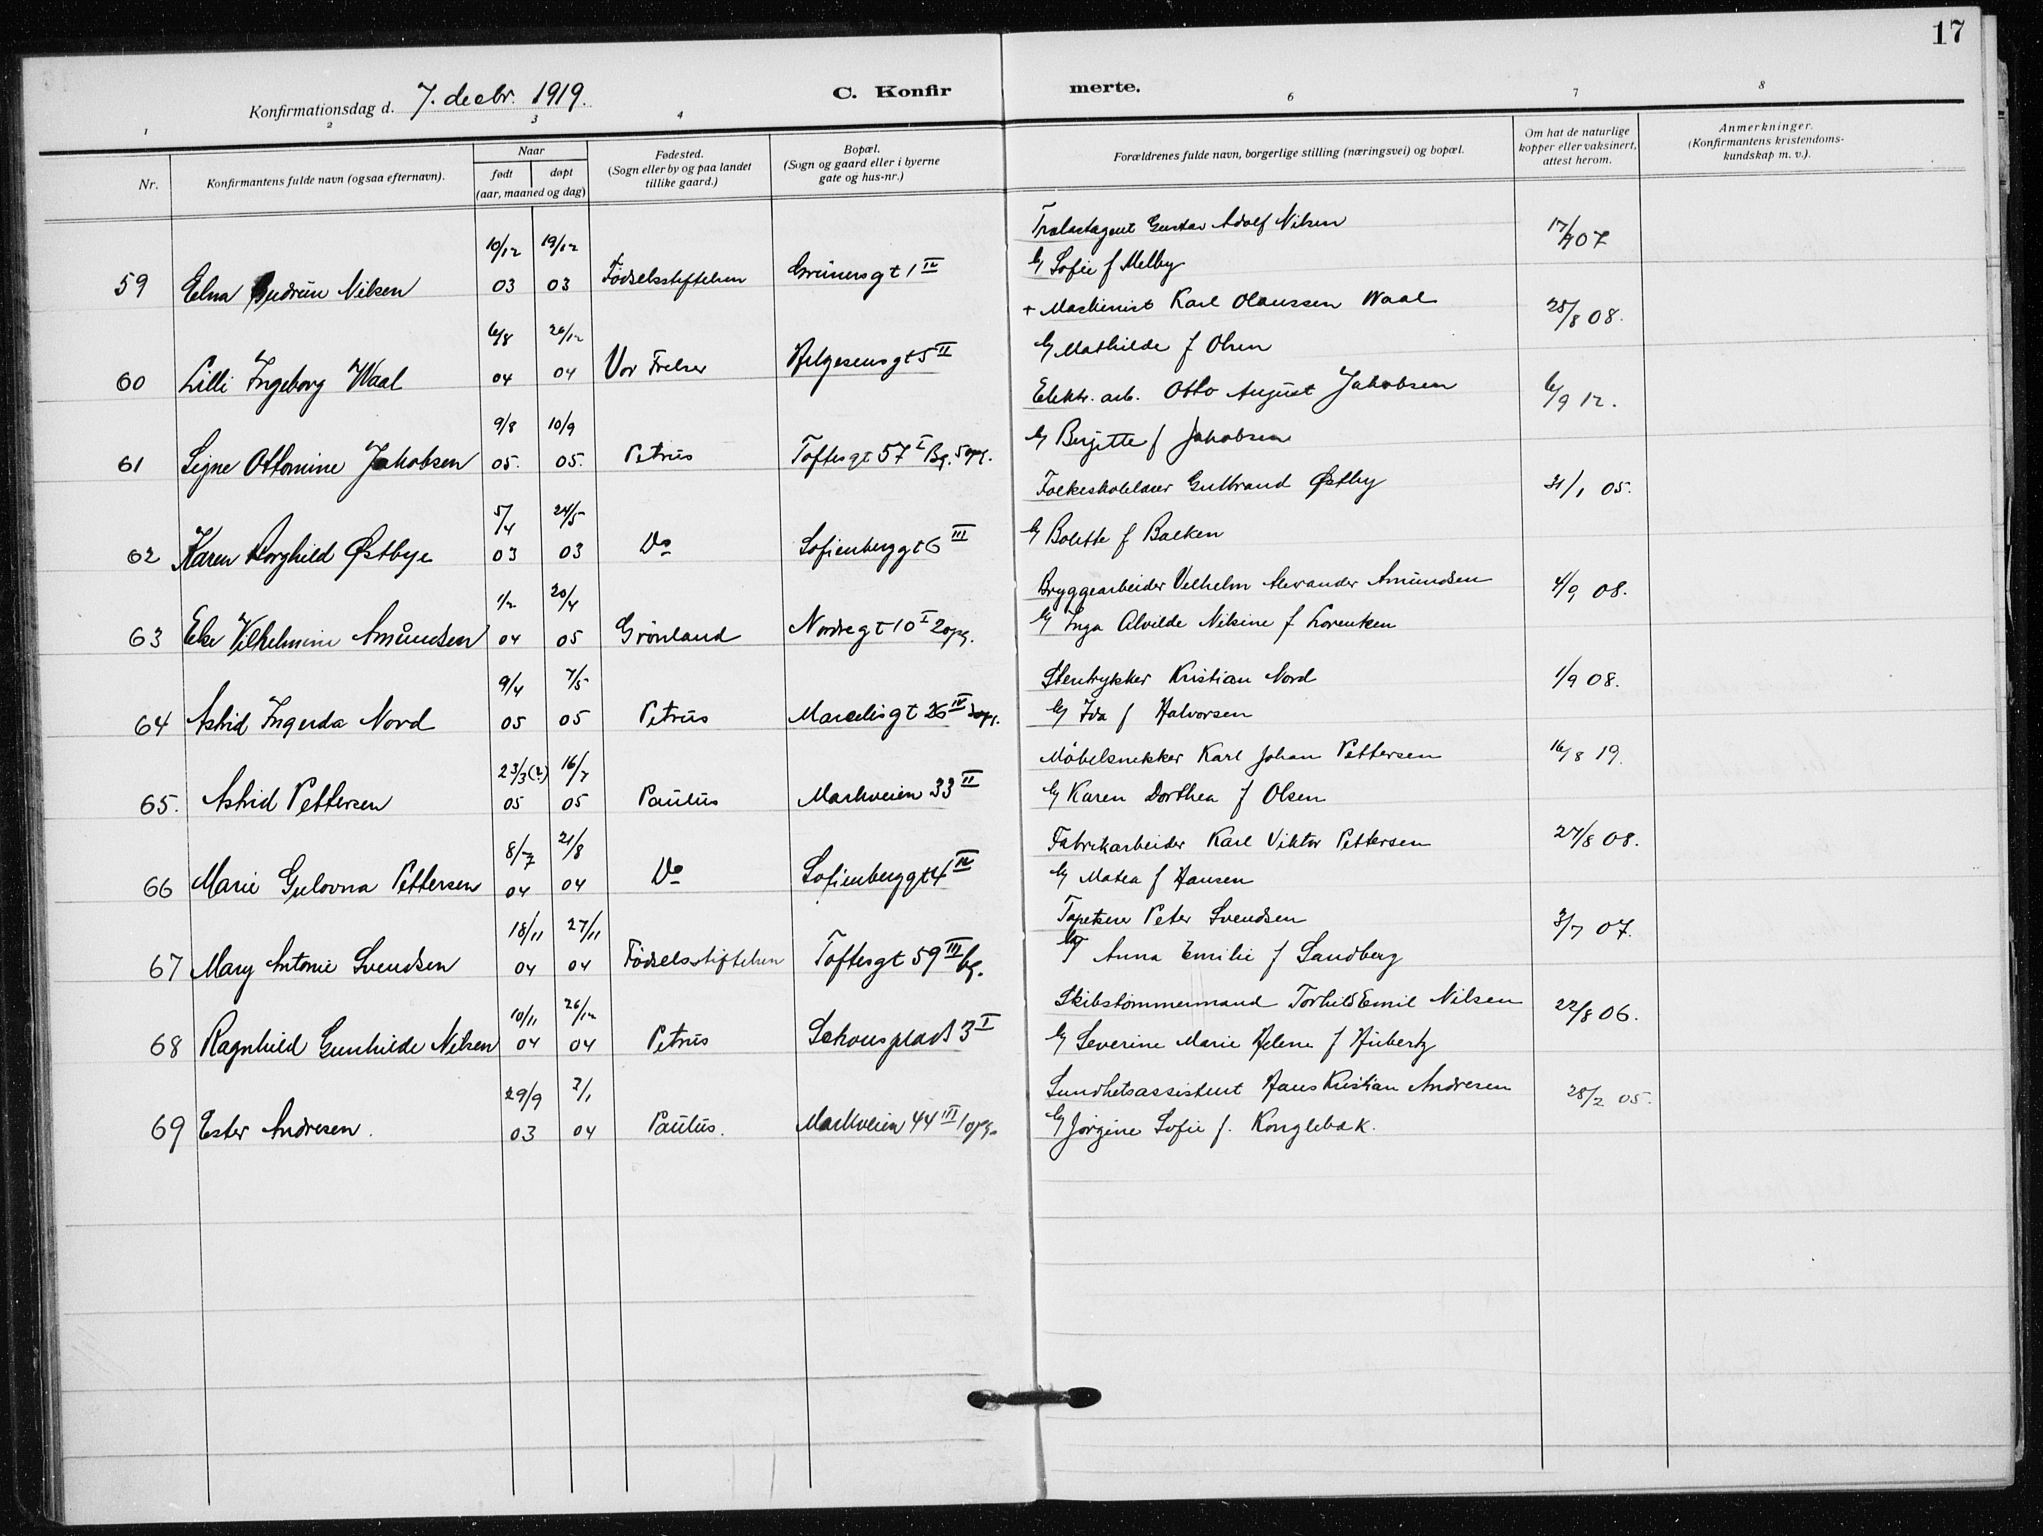 17
Konfirmationsdag d. 7. decbr. 1919. C. Konfir merte.
1 2 3 4 6 7 8
Nr. Konfirmantens fulde navn (ogsaa efternavn). Naar født døpt (aar, maaned og dag) Fødested. (Sogn eller by og paa landet tillike gaard.) Bopæl. (Sogn og gaard eller i byerne gate og hus-nr.) Forældrenes fulde navn, borgerlige stilling (næringsvei) og bopæl. Om hat de naturlige kopper eller vaksinert, attest herom. Anmerkninger. (Konfirmantens kristendoms-kundskap m. v.).
10/12 19/12 Trælastagent Gustav Adolf Nilsen 17/9 07
59 Elna Gudrun Nilsen 03 03 Fødselsstiftelsen Grünersgt 1 IV Sofie f Melby
6/8 26/12 + Maskinist Karl Olaussen Waal 25/8 08.
60 Lilli Ingeborg Waal 04 04 Vor Frelser Helgesensgt 5 II Mathilde f Olsen
9/8 10/9 Elektr. arb. Otto August Jakobsen 6/9 12.
61 Signe Ottomine Jakobsen 05. 05. Petrus Toftesgt 57 I Bg. 5 opg. Birgitte f Jakobsen
5/4 24/5 Folkeskolelærer Gulbrand Østby 31/1 05.
62 Karen Borghild Østbye 03 03 Do Sofienberggt 6 III Bolette f Balken
1/2 20/4 Bryggearbeider Vilhelm Alexander Amundsen 4/9 08.
63 Else Vilhelmine Amundsen 04 05 Grønland Nordregt 10 I 2 opg. Inga Alvilde Nilsine f Lorentzen
9/4 7/5 Stentrykker Kristian Nord 1/9 08.
64 Astrid Ingerda Nord 05 05 Petrus Marcelisgt 26 IV 2 opg. Ida f Halvorsen
23/3 (2) 16/7 Møbelsnekker Karl Johan Pettersen 16/8 19.
65. Astrid Pettersen 05 05 Paulus Markveien 33 II Karen Dorthea f Olsen
8/7 21/8 Fabrikarbeider Karl Viktor Pettersen 27/8 08.
66 Marie Gulovna Pettersen 04 04 Do Sofienberggt 4 IV Matea f Hansen
18/11 27/11 Tapetserer Peter Svendsen 3/7 07.
67 Mary Antonie Svendsen 04 04 Fødselsstiftelsen Toftesgt 59 III bg. Anna Emilie f Sandberg
10/11 26/12 Skibstømmermand Torhild Emil Nilsen 22/8 06.
68 Ragnhild Gunhilde Nilsen 04 04 Petrus Schousplads 3 I Severine Marie Helene f Hübertz
29/9 3/1 Sundhetsassistent Hans Kristian Andresen 28/2 05.
69 Ester Andresen. 03 04 Paulus. Markveien 44 III 1 opg. Jørgine Sofie f. Konglebak.